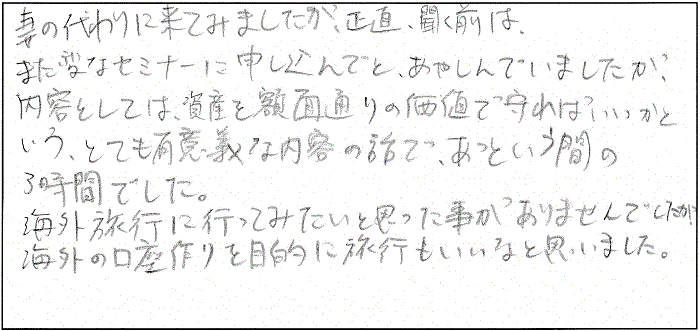 妻の代わりに来てみましたが、正直、聞く前は、
また変なセミナーに申し込んでと、あやしんでいましたが、
内容としては、資産を額面通りの価値で守ればいいかと
いう、とても有意義な内容の話で、あっという間の
3時間でした。
海外旅行に行ってみたいと思った事がありませんでしたが
海外の口座作りを目的に旅行もいいなと思いました。